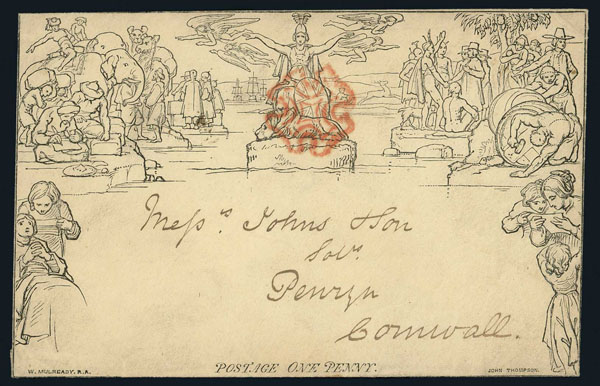 Messrs Johns Son
Solrs
Penryn
Cornwall.
W. MULREADY. R.A.
POSTAGE ONE PENNY.
JOHN THOMPSON.